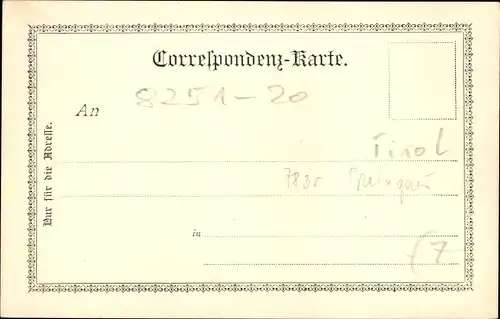 Correspondenz-Karte.
8251-20
An
Nur für die Adresse.
Tirol
in
(7